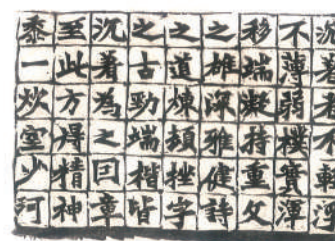 不薄弱樸實渾
移端凝持重文
之雄深雅健詩
之道煉頓挫字
之古勁端楷皆
沉着為之回章
至此方得精神
黍一炊室少阿